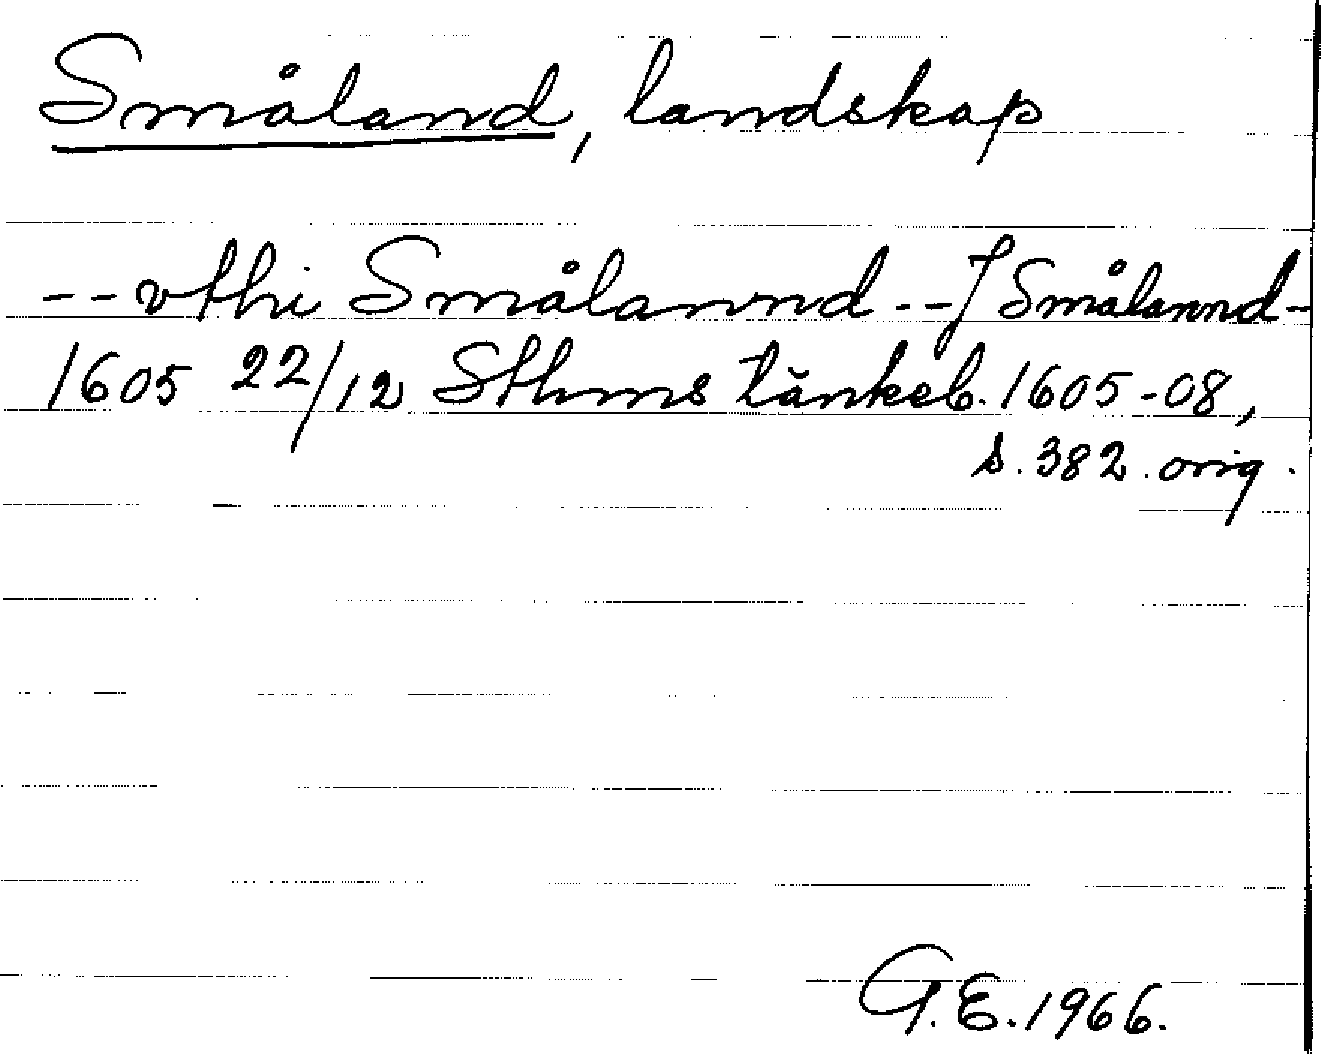 Småland, landskap
-- vthi Smålannd -- J Smålannd -
1605 22/12 Sthms tänkeb. 1605-08,
s. 382. orig.
G.E. 1966.